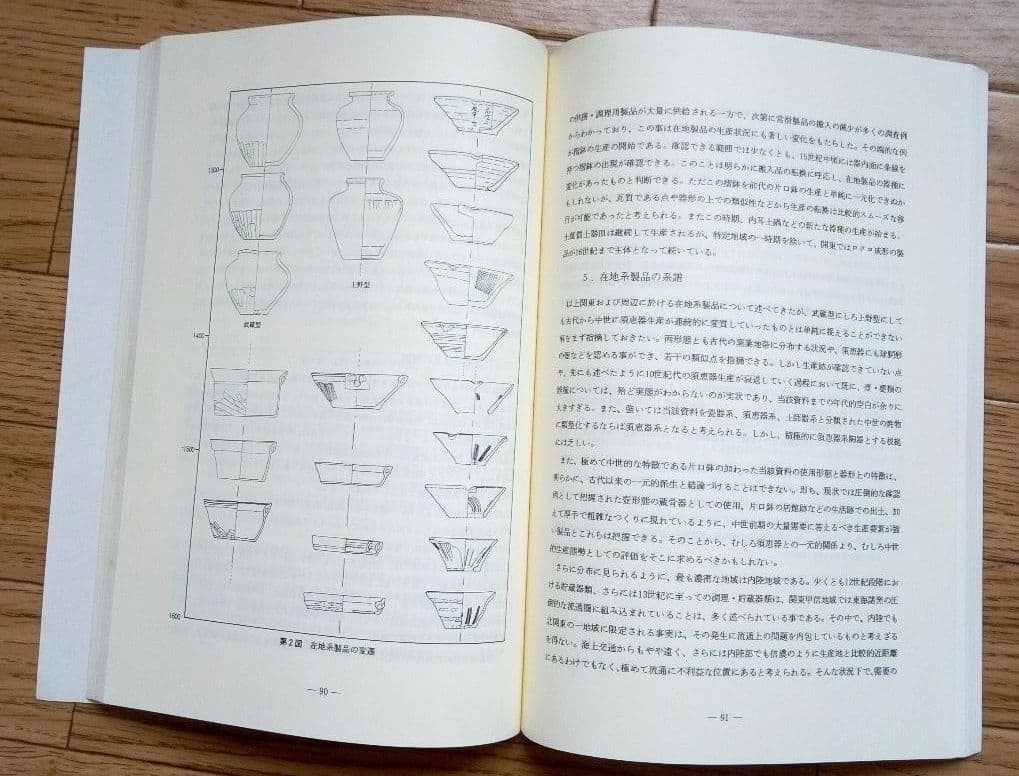 1300
上野型
武蔵型
1400
1500
1600
第2図 在地系製品の変遷
― 90 ―
の供膳・調理用製品が大量に供給される一方で、次第に常滑製品の搬入の減少が多くの調査例
からわかっており、この事は在地製品の生産状況にも著しい変化をもたらした。その端的な例
が擂鉢の生産の開始である。確認できる範囲では少なくとも、15世紀中頃には器内面に条線を
持つ擂鉢の出現が確認できる。このことは明らかに搬入品の転換に呼応し、在地製品の器種に
変化があったものと判断できる。ただこの擂鉢を前代の片口鉢の生産と単純に一元化できぬか
もしれないが、瓦質である点や器形の上での類似性などから生産の転換は比較的スムーズな移
行が可能であったと考えられる。またこの時期、内耳土鍋などの新たな器種の生産が始まる。
土師質土器皿は継続して生産されるが、特定地域の一時期を除いて、関東ではロクロ成形の製
品が16世紀まで主体となって続いている。
5．在地系製品の系譜
以上関東および周辺に於ける在地系製品について述べてきたが、武蔵型にしろ上野型にして
も古代から中世に須恵器生産が連続的に変質していったものとは単純に捉えることができない
事をまず指摘しておきたい。両形態とも古代の窯業地帯に分布する状況や、須恵器にも球胴形
の壺などを認める事ができ、若干の類似点を指摘できる。しかし生産跡が確認できていない点
や、先にも述べたように10世紀代の須恵器生産が衰退していく過程において既に、壺・甕類の
器種については、殆ど実態がわからないのが実状であり、当該資料までの年代的空白が余りに
大きすぎる。また、強いては当該資料を瓷器系、須恵器系、土師器系と分類された中世の焼物
に類型化するならば須恵器系となると考えられる。しかし、積極的に須恵器系陶器とする根拠
には乏しい。
また、極めて中世的な特徴である片口鉢の加わった当該資料の使用形態と器形上の特徴は、
明らかに、古代以来の一元的派生と結論づけることはできない。即ち、現状では圧倒的な確認
例として把握された壺形態の蔵骨器としての使用、片口鉢の居館跡などの生活跡での出土、加
えて厚手で粗雑なつくりに現れているように、中世前期の大量需要に答えるべき生産要素が強
い製品とこれらは把握できる。そのことから、むしろ須恵器との一元的関係より、むしろ中世
的生産態勢としての評価をそこに求めるべきかもしれない。
さらに分布に見られるように、最も濃密な地域は内陸地域である。少くとも12世紀段階にお
ける貯蔵器類、さらには13世紀に至っての調理・貯蔵器類は、関東甲信地域では東海諸窯の圧
倒的な流通圏に組み込まれていることは、多く述べられている事である。その中で、内陸でも
北関東の一地域に限定される事実は、その発生に流通上の問題を内包しているものと考えざる
を得ない。海上交通からもやや遠く、さらには内陸部でも信濃のように生産地と比較的近距離
にあるわけでもなく、極めて流通に不利益な位置にあると考えられる。そんな状況下で、需要の
― 91 ―